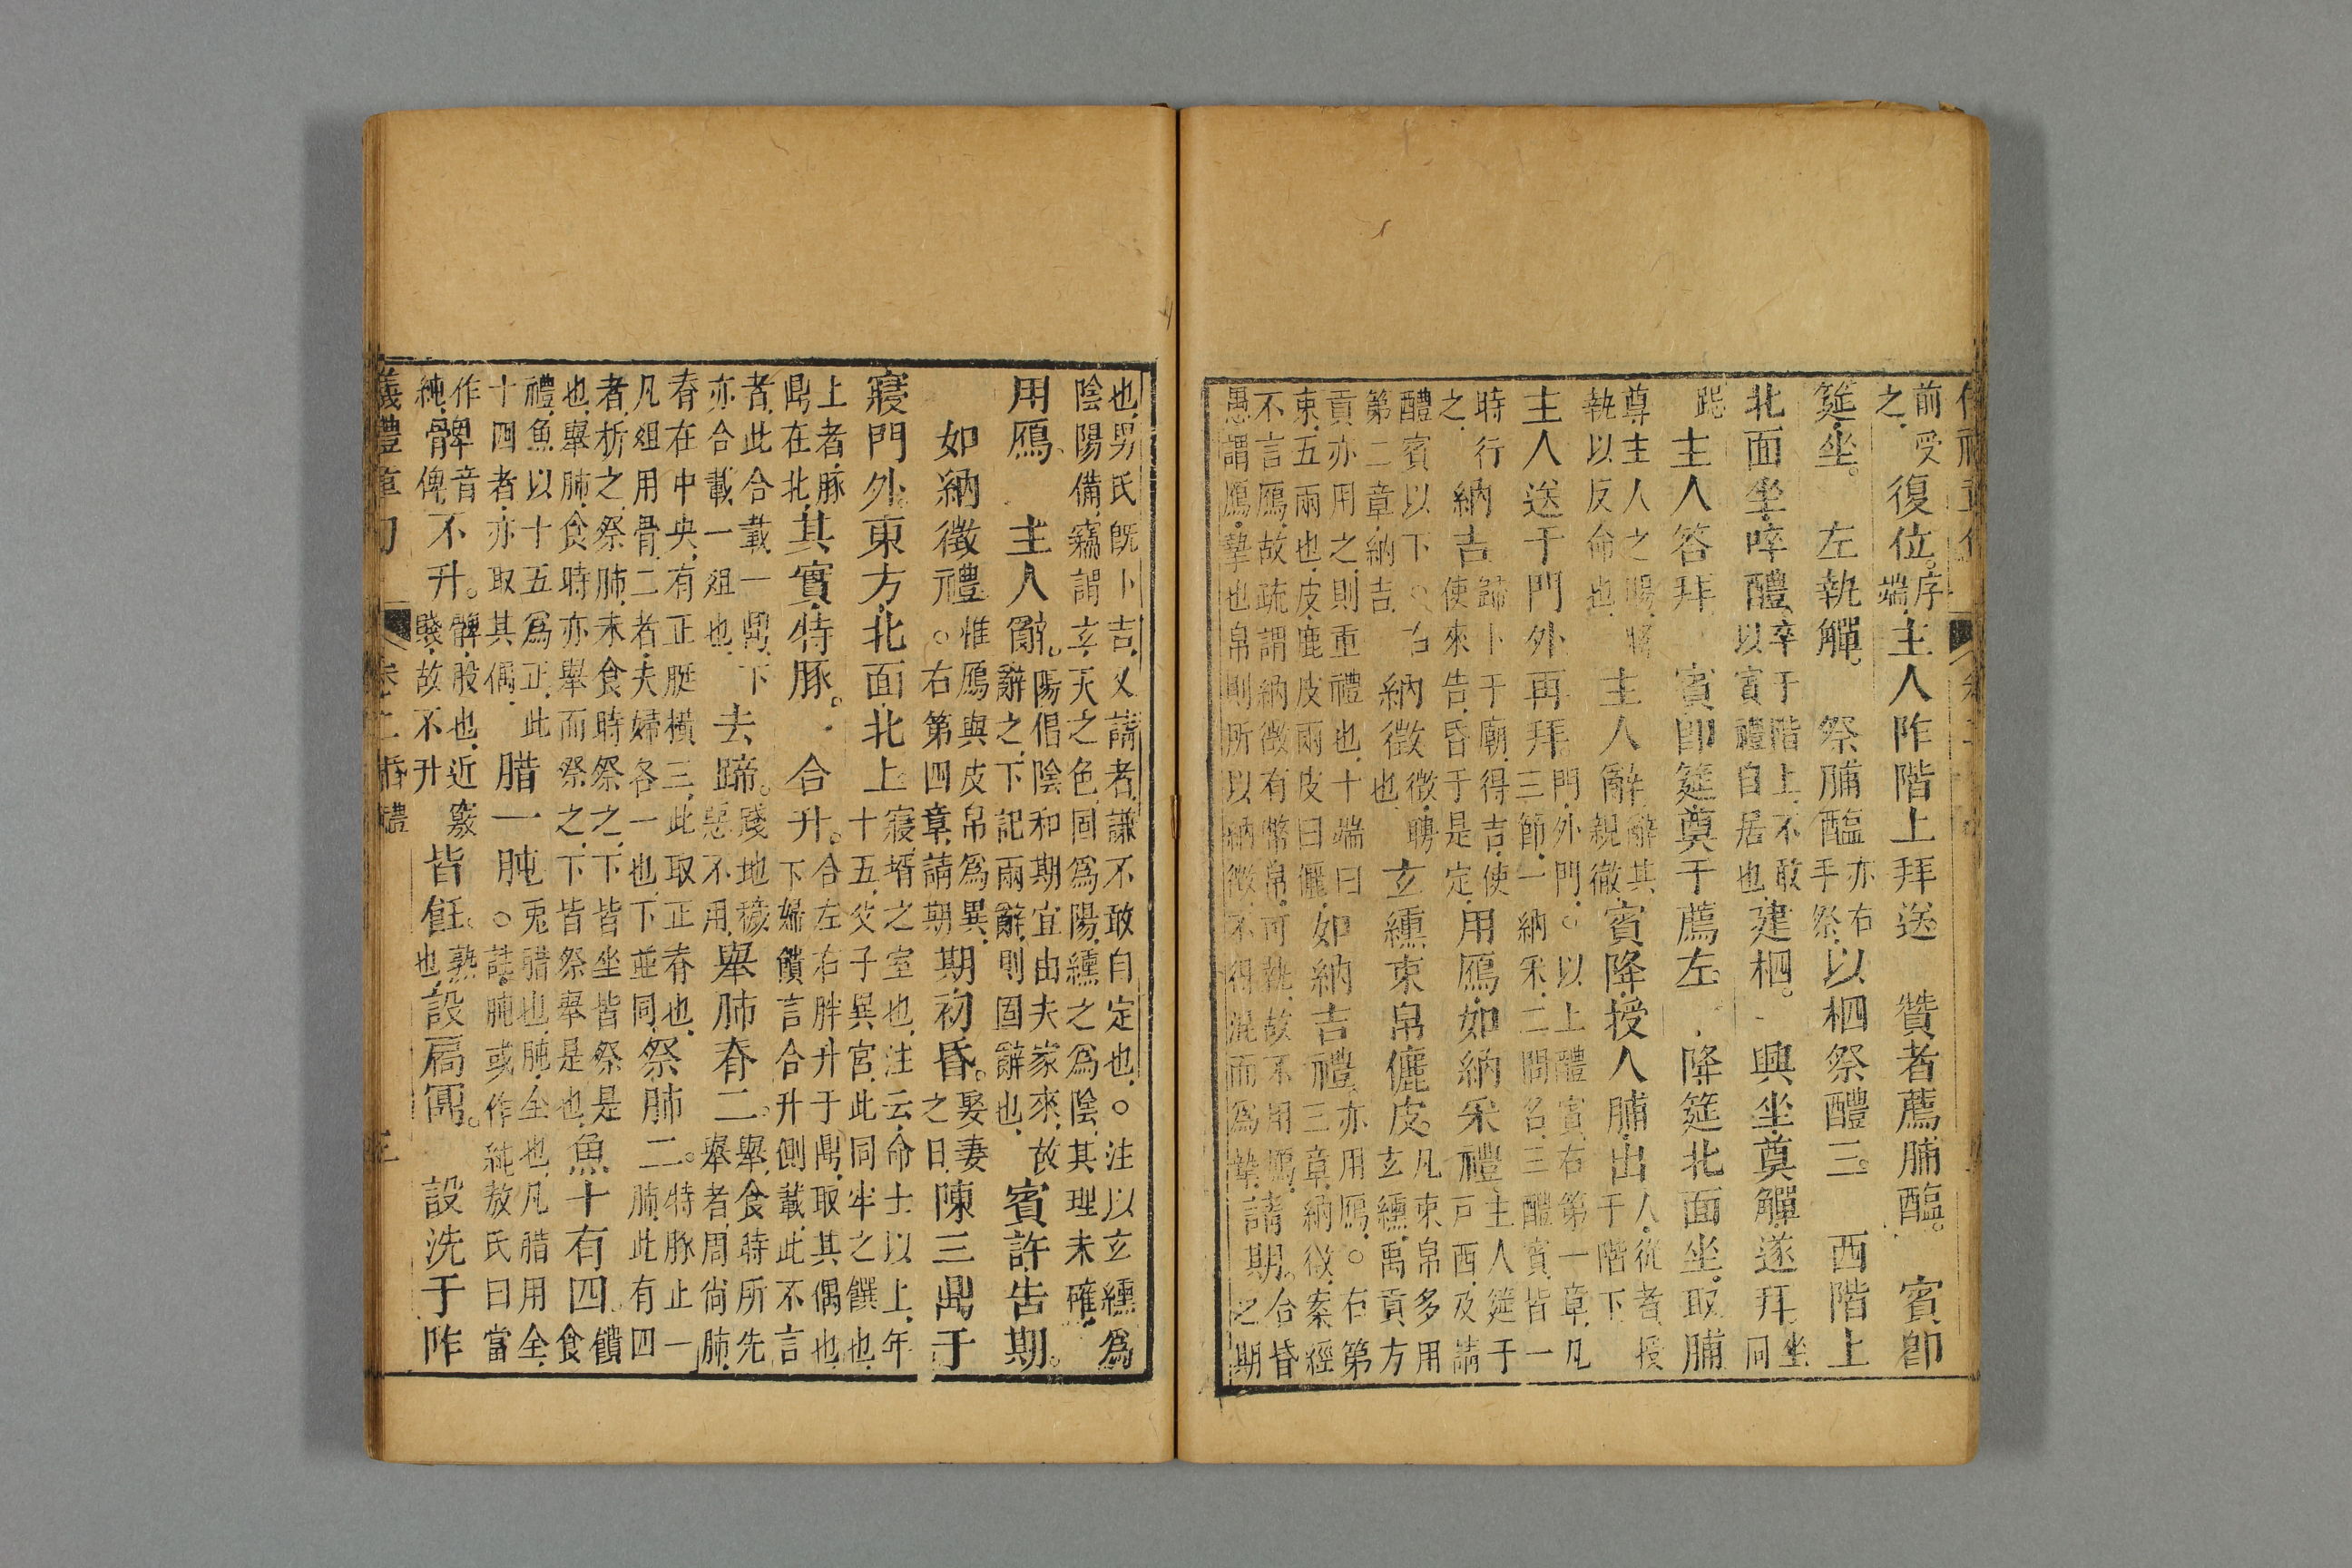 前受之復位。序端主人阼階上拜送　贊者薦脯醢。賓卽
筵坐。左執觶。祭脯醢亦右手祭以柶祭醴三。西階上
北面坐啐醴啐于階上不敢以賓禮自居也建柶。興坐奠觶遂拜坐同
跪主人答拜　賓卽筵奠于薦左　降筵北面坐取脯
尊主人之賜將執以反命也主人辭辭其親徹賓降授人脯出人從者授于階下
主人送于門外再拜門外門○以上醴賓右第一章凡三節一納采二問名三醴賓皆一
時行之納吉歸卜于廟得吉使使來告昏于是定用鴈如納采禮主人筵于戶西及請
醴賓以下○右第二章納吉納徵徵聘也玄纁束帛儷皮。凡束帛多用玄纁禹貢方
貢亦用之則重禮也十端曰束五兩也皮鹿皮兩皮曰儷如納吉禮亦用鴈○右第三章納徵案經
不言鴈故疏謂納徵有幣帛可執故不用鴈愚謂鴈摯也帛則所以納徵不得混而爲摯請期。合昏之期
也男氏既卜吉又請者謙不敢自定也○注以玄纁爲陰陽備竊謂玄天之色固爲陽纁之爲陰其理未確
用鴈　主人辭。陽倡陰和期宜由夫家來故辭之下記兩辭則固辭也賓許告期。
如納徵禮惟鴈與皮帛爲異○右第四章請期期初昏。娶妻之日陳三鼎于
寢門外東方北面北上寢壻之室也注云命士以上年十五父子異宮此同牢之饌也
上者豚鼎在北其實特豚。合升。合左右胖升于鼎取其偶也下婦饋言合升側載此不言
者此合載一鼎下亦合載一俎也去蹄。踐地穢惡不用舉肺脊二。舉食時所先舉者周尚肺
脊在中央有正脡橫三此取正脊也凡俎用骨二者夫婦各一也下並同祭肺二。特豚止一肺此有四
者析之祭肺未食時祭之下皆坐皆祭是也舉肺食時亦舉而祭之下皆祭舉是也魚十有四饋食
禮魚以十五爲正此十四者亦取其偶腊一肫兎腊也肫全也凡腊用全○註肫或作純敖氏曰當
作純髀音俾不升。髀股也近竅賤故不升皆飪。熟也設扃鼏。設洗于阼
儀禮章句　卷二婚禮　三